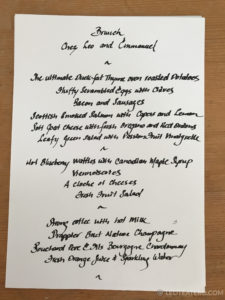 Brunch
Chez Leo and Emmanuel
~
The ultimate Duck-fat Thyme oven roasted Potatoes
Fluffy Scrambled Eggs with Chives
Bacon and Sausages
Scottish Smoked Salmon with Capers and Lemon
Soft Goat Cheese with fresh Oregano and Red Onions
Leafy Green Salad with Passion Fruit Vinaigrette
~
Hot Blueberry Waffles with Canadian Maple Syrup
Viennoiseries
A cloche of Cheeses
Fresh Fruit Salad
~
Strong coffee with hot Milk
Drappier Brut Nature Champagne
Bouchard Père & Fils Bourgogne Chardonnay
Fresh Orange Juice & Sparkling Water
~